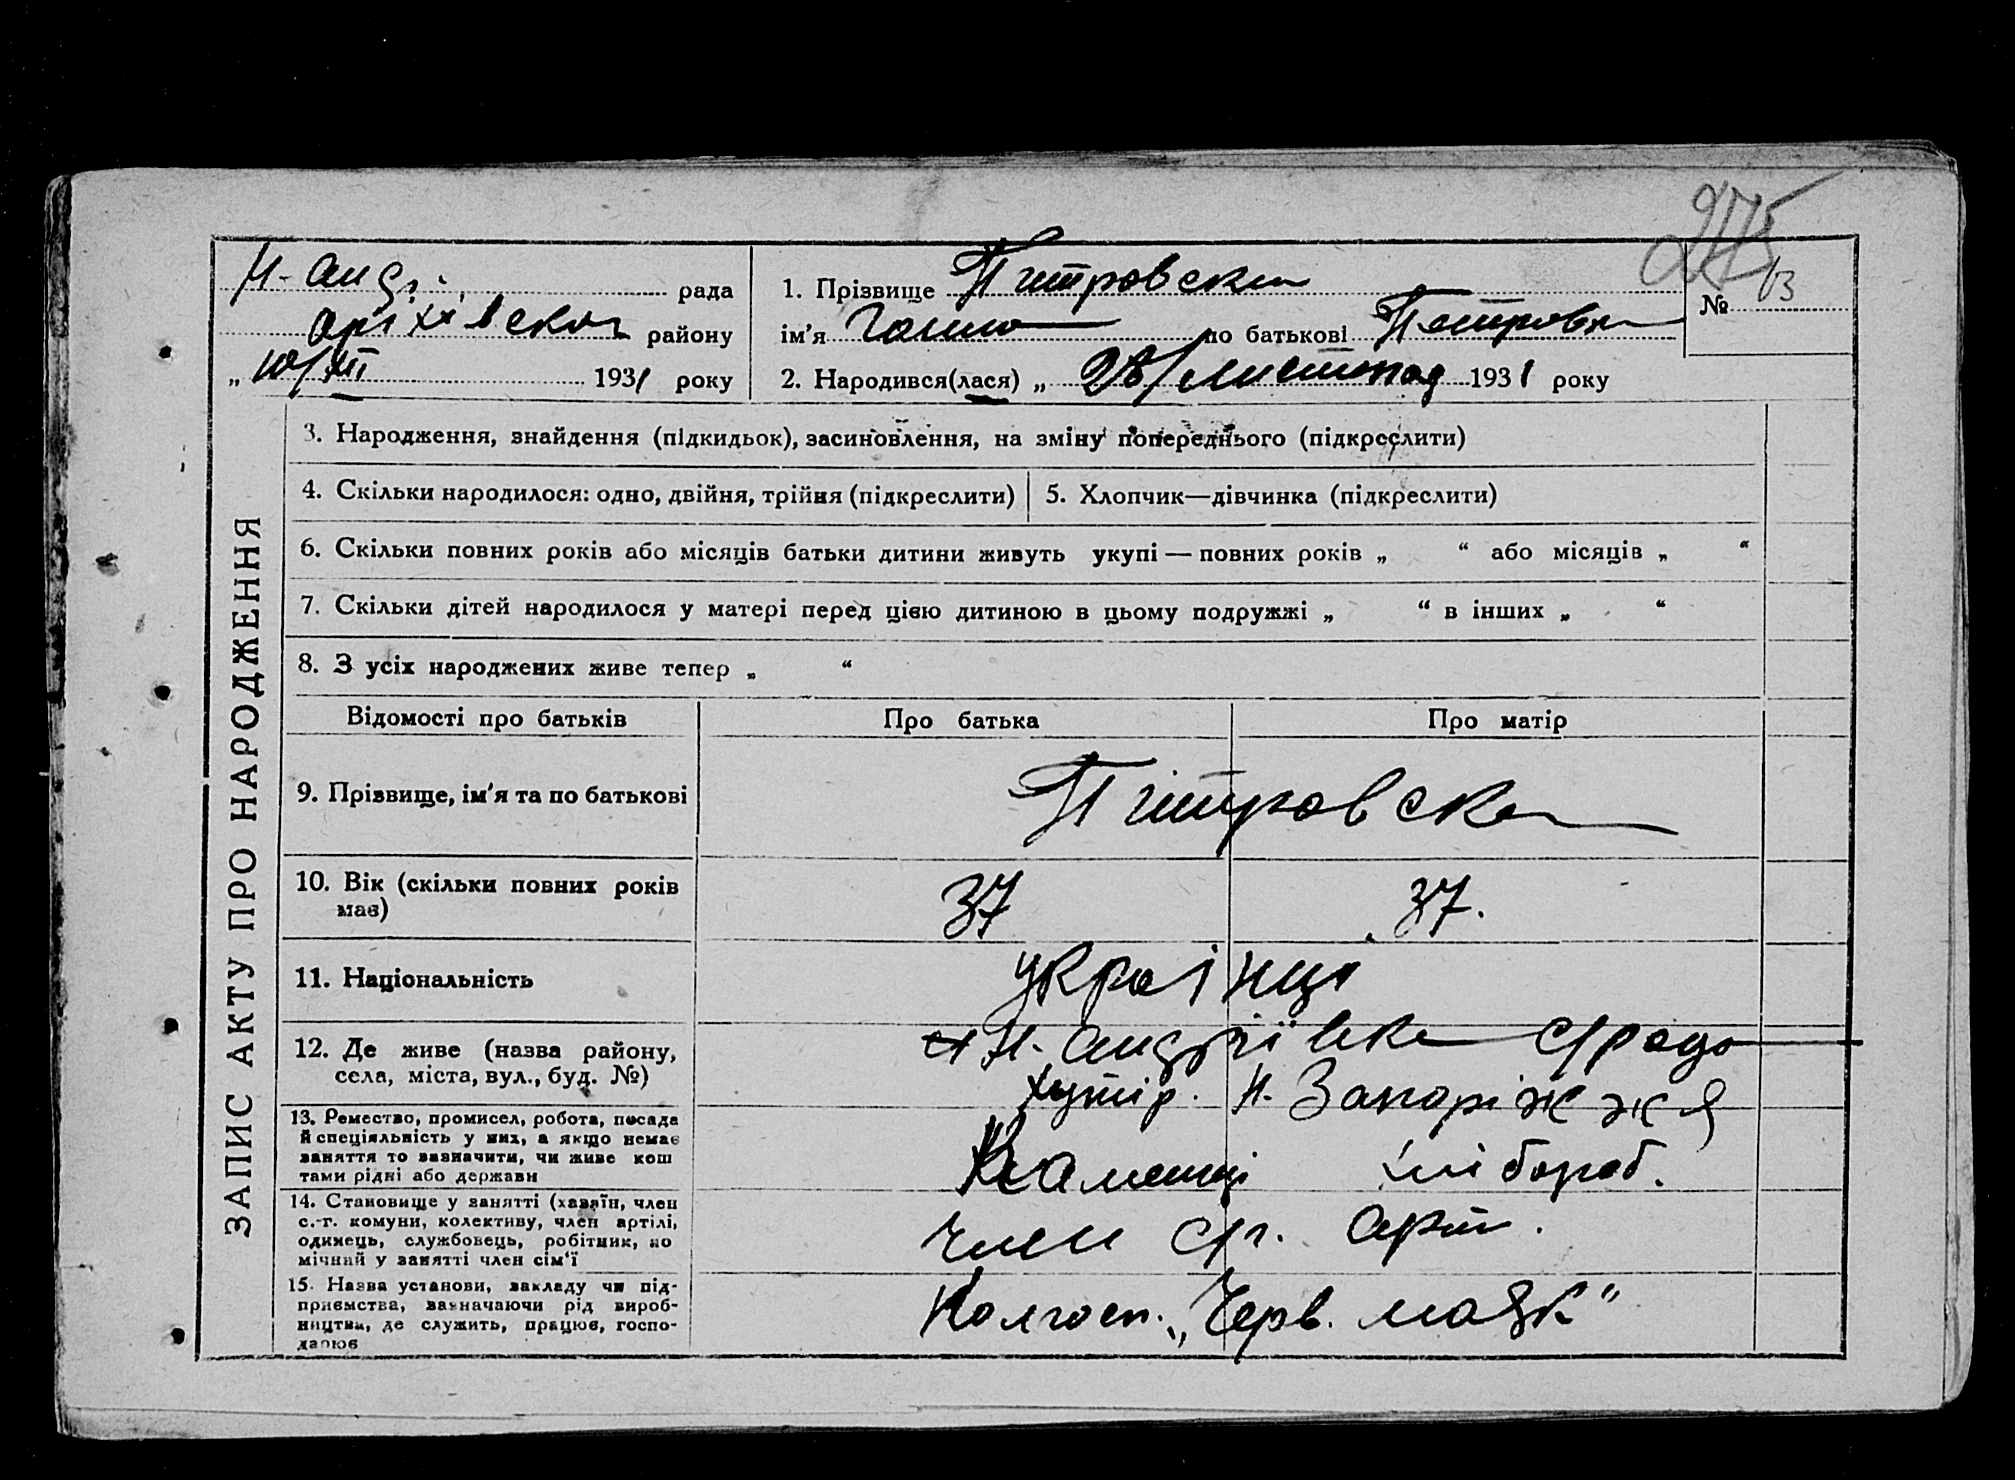 275
Н-Анд. рада
Оріхівськ району
„ 10/XII 1931 року
1. Прізвище Питровска
ім'я Ганна по батькові Петровн
2. Народився(лася) „ 28/листопад 1931 року
№ 13
ЗАПИС АКТУ ПРО НАРОДЖЕННЯ
3. Народження, знайдення (підкидьок), засиновлення, на зміну попереднього (підкреслити)
4. Скільки народилося: одно, двійня, трійня (підкреслити) 5. Хлопчик—дівчинка (підкреслити)
6. Скільки повних років або місяців батьки дитини живуть укупі — повних років „ “ або місяців „ “
7. Скільки дітей народилося у матері перед цією дитиною в цьому подружжі „ “ в інших „ “
8. З усіх народжених живе тепер „ “
Відомості про батьків Про батька Про матір
9. Прізвище, ім'я та по батькові Питровска
10. Вік (скільки повних років 37 37.
має)
11. Національність Українці
12. Де живе (назва району, Н. Андріївка с/рада
села, міста, вул., буд. №) хутір. Н. Запоріжжя
13. Ремество, промисел, робота, посада
й спеціяльність у них, а якщо немає
заняття то зазначити, чи живе кош
тами рідні або держави хлібороб.
14. Становище у занятті (хазяїн, член
с.-г. комуни, колективу, член артілі,
одинець, службовець, робітник, по
мічний у занятті член сім'ї Члени с/г. арт.
15. Назва установи, закладу чи під-
приємства, зазначаючи рід вироб-
ництва, де служить, працює, госпо-
дарює Колгосп. „Черв. маяк“